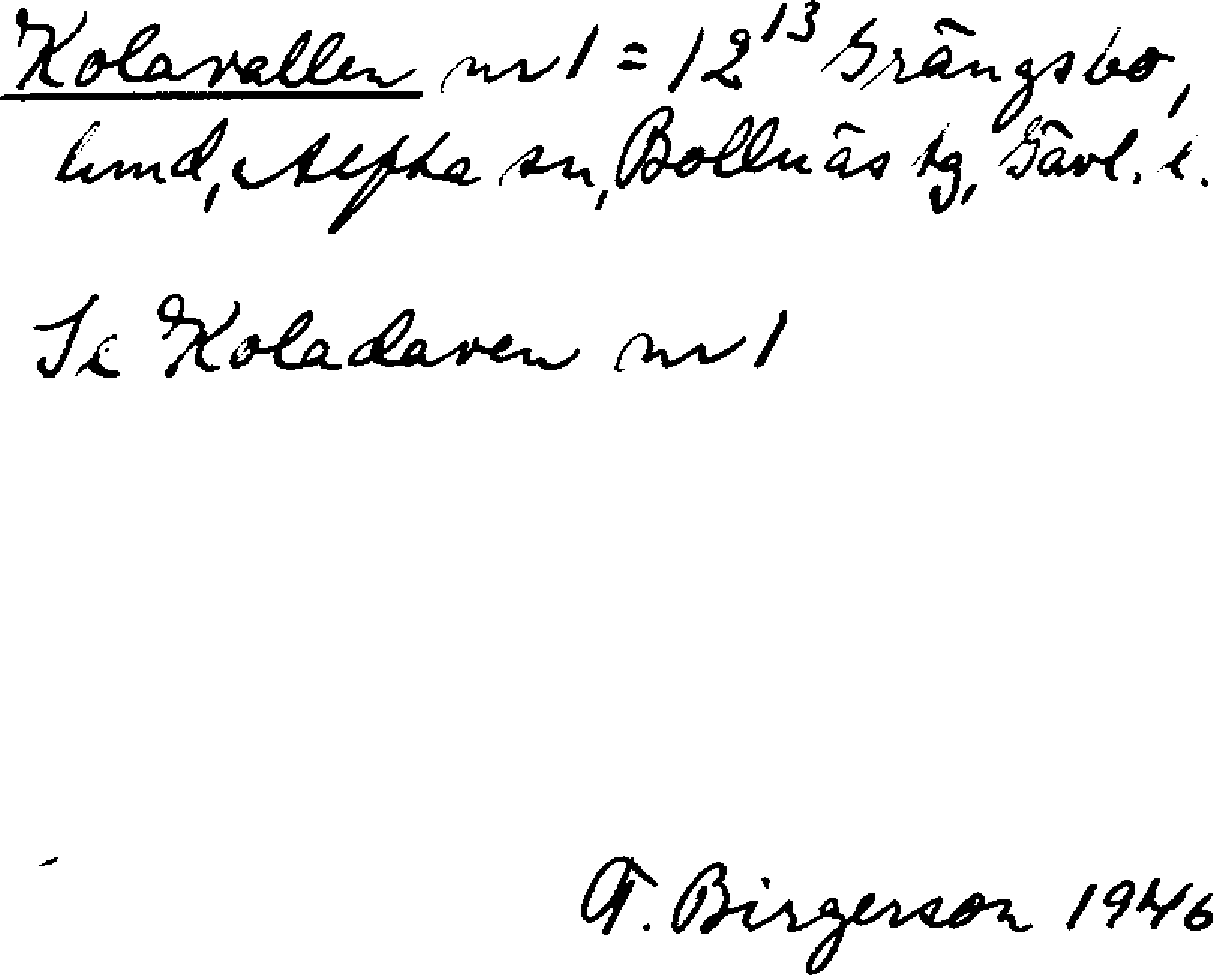 Kolavallen nr 1 = 12¹³ Grängsbo,
hmd, Alfta sn, Bollnäs tg, Gävl. l.
Se Koladaven nr 1
T. Birgerson 1946